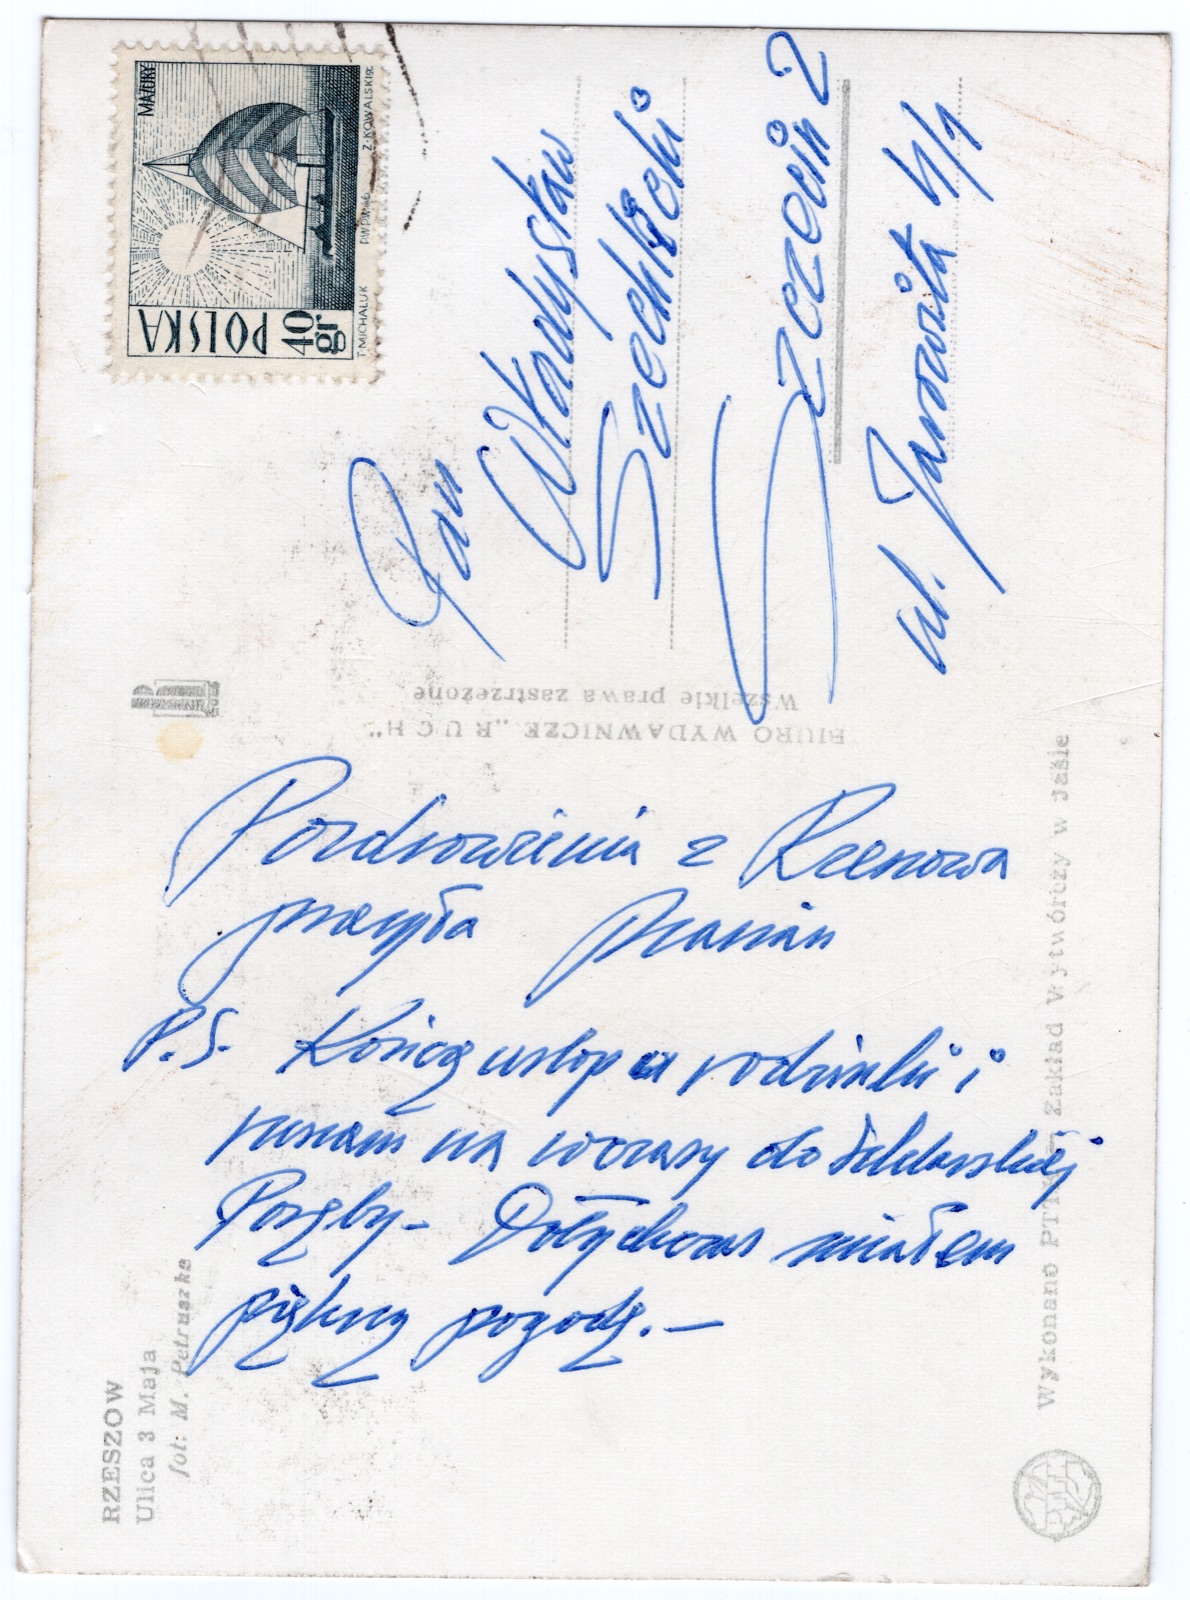 RZESZOW
Ulica 3 Maja
fot: M. Petruszka
Pozdrowienia z Rzeszowa
przesyła Marian
P.S. Kończę urlop u rodzinki i
ruszam na wczasy do Szklarskiej
Poręby – Dotychczas miałem
piękną pogodę. –
BIURO WYDAWNICZE „RUCH"
Wszelkie prawa zastrzeżone
Wykonano PTTK Zakład Wytwórczy w Jaśle
PTTK
MAZURY
POLSKA
40 gr
T. MICHALUK
PWPW 66
Z. KOWALSKI sc.
Pan
Władysław
Szecht
Szczecin 2
ul. Jarowita 4/1